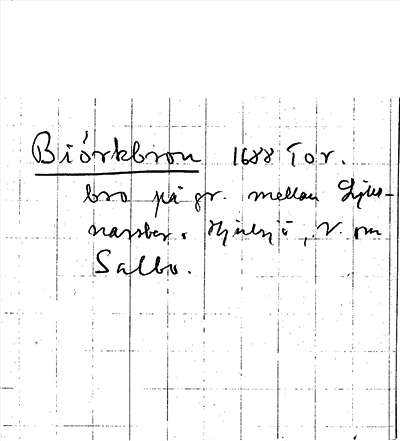 Biórkbron 1688 Tor.
bro på gr. mellan Ljus-
narsber. o. Hjulsjö, V. om
Salbo.